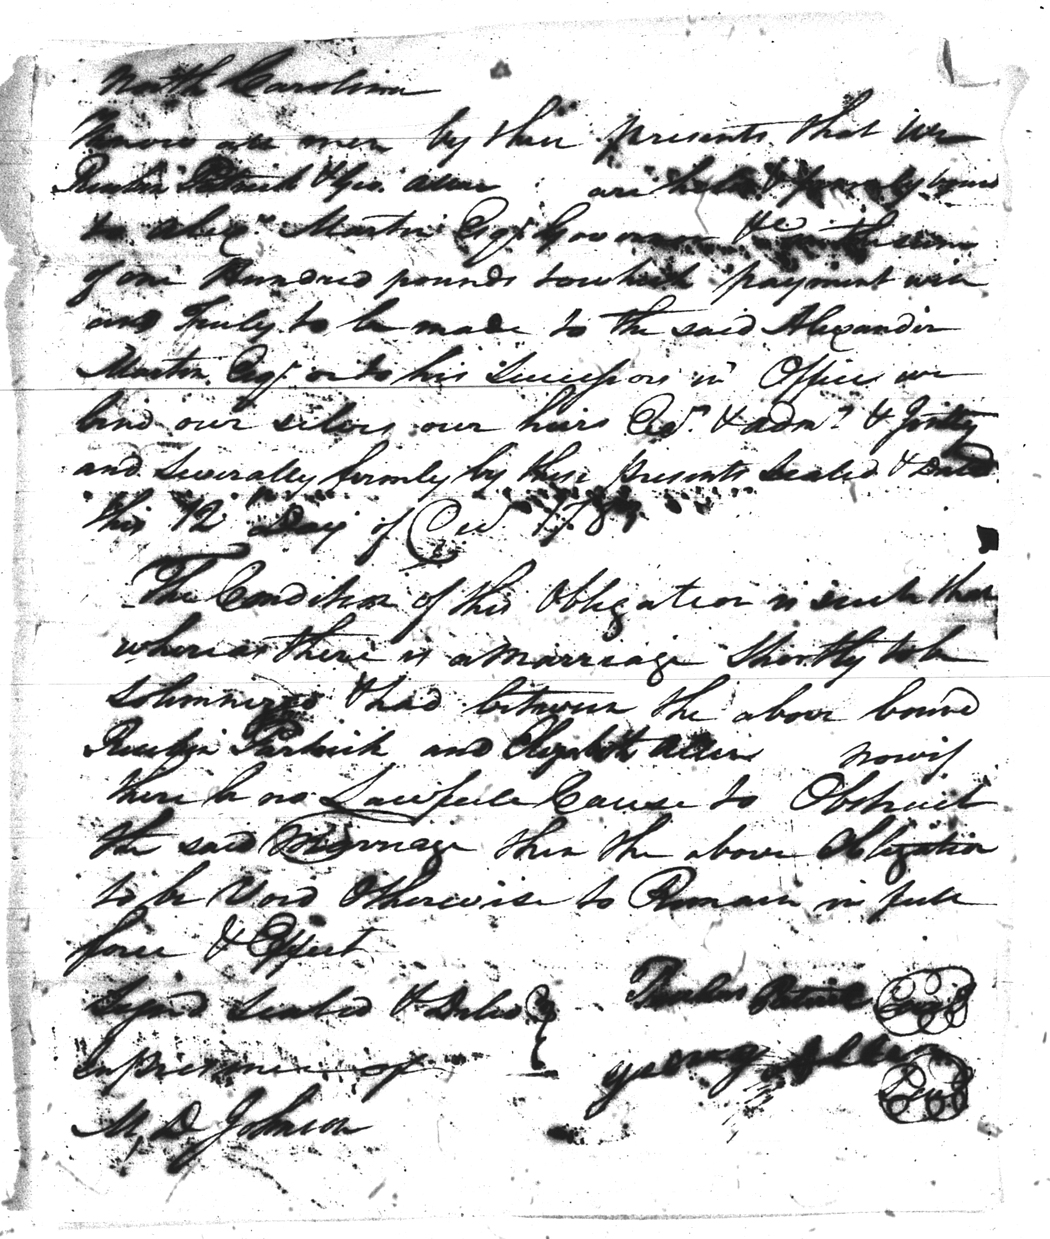 North Carolina
Know all men by these presents that we
Reubin Patrick & Geo. Allen are held & firmly boun
to Alexr Martin Esqr Governor &c in the sum
of one Hundred pounds to which payment well
and Truly to be made to the said Alexander
Martin Esqr or to his Successors in Office we
bind our selves our heirs Exd. & adms & Jointly
and Severally firmly by these presents Sealed & Dated
this 12 Day of 178
The Condition of this Obligation is such that
whereas there is a marriage Shortly to be
Solemnized & had between the above bound
Reubin Patrick and Elizabeth Allen now if
there be no Lawfull Cause to Obstruct
the said Marriage then the above Obligation
to be Void Otherwise to Remain in full
force & Effect
Signd Sealed & Deld
In presence of
M. D. Johnson
Reuben Patrick Seal
georg Allen Seal